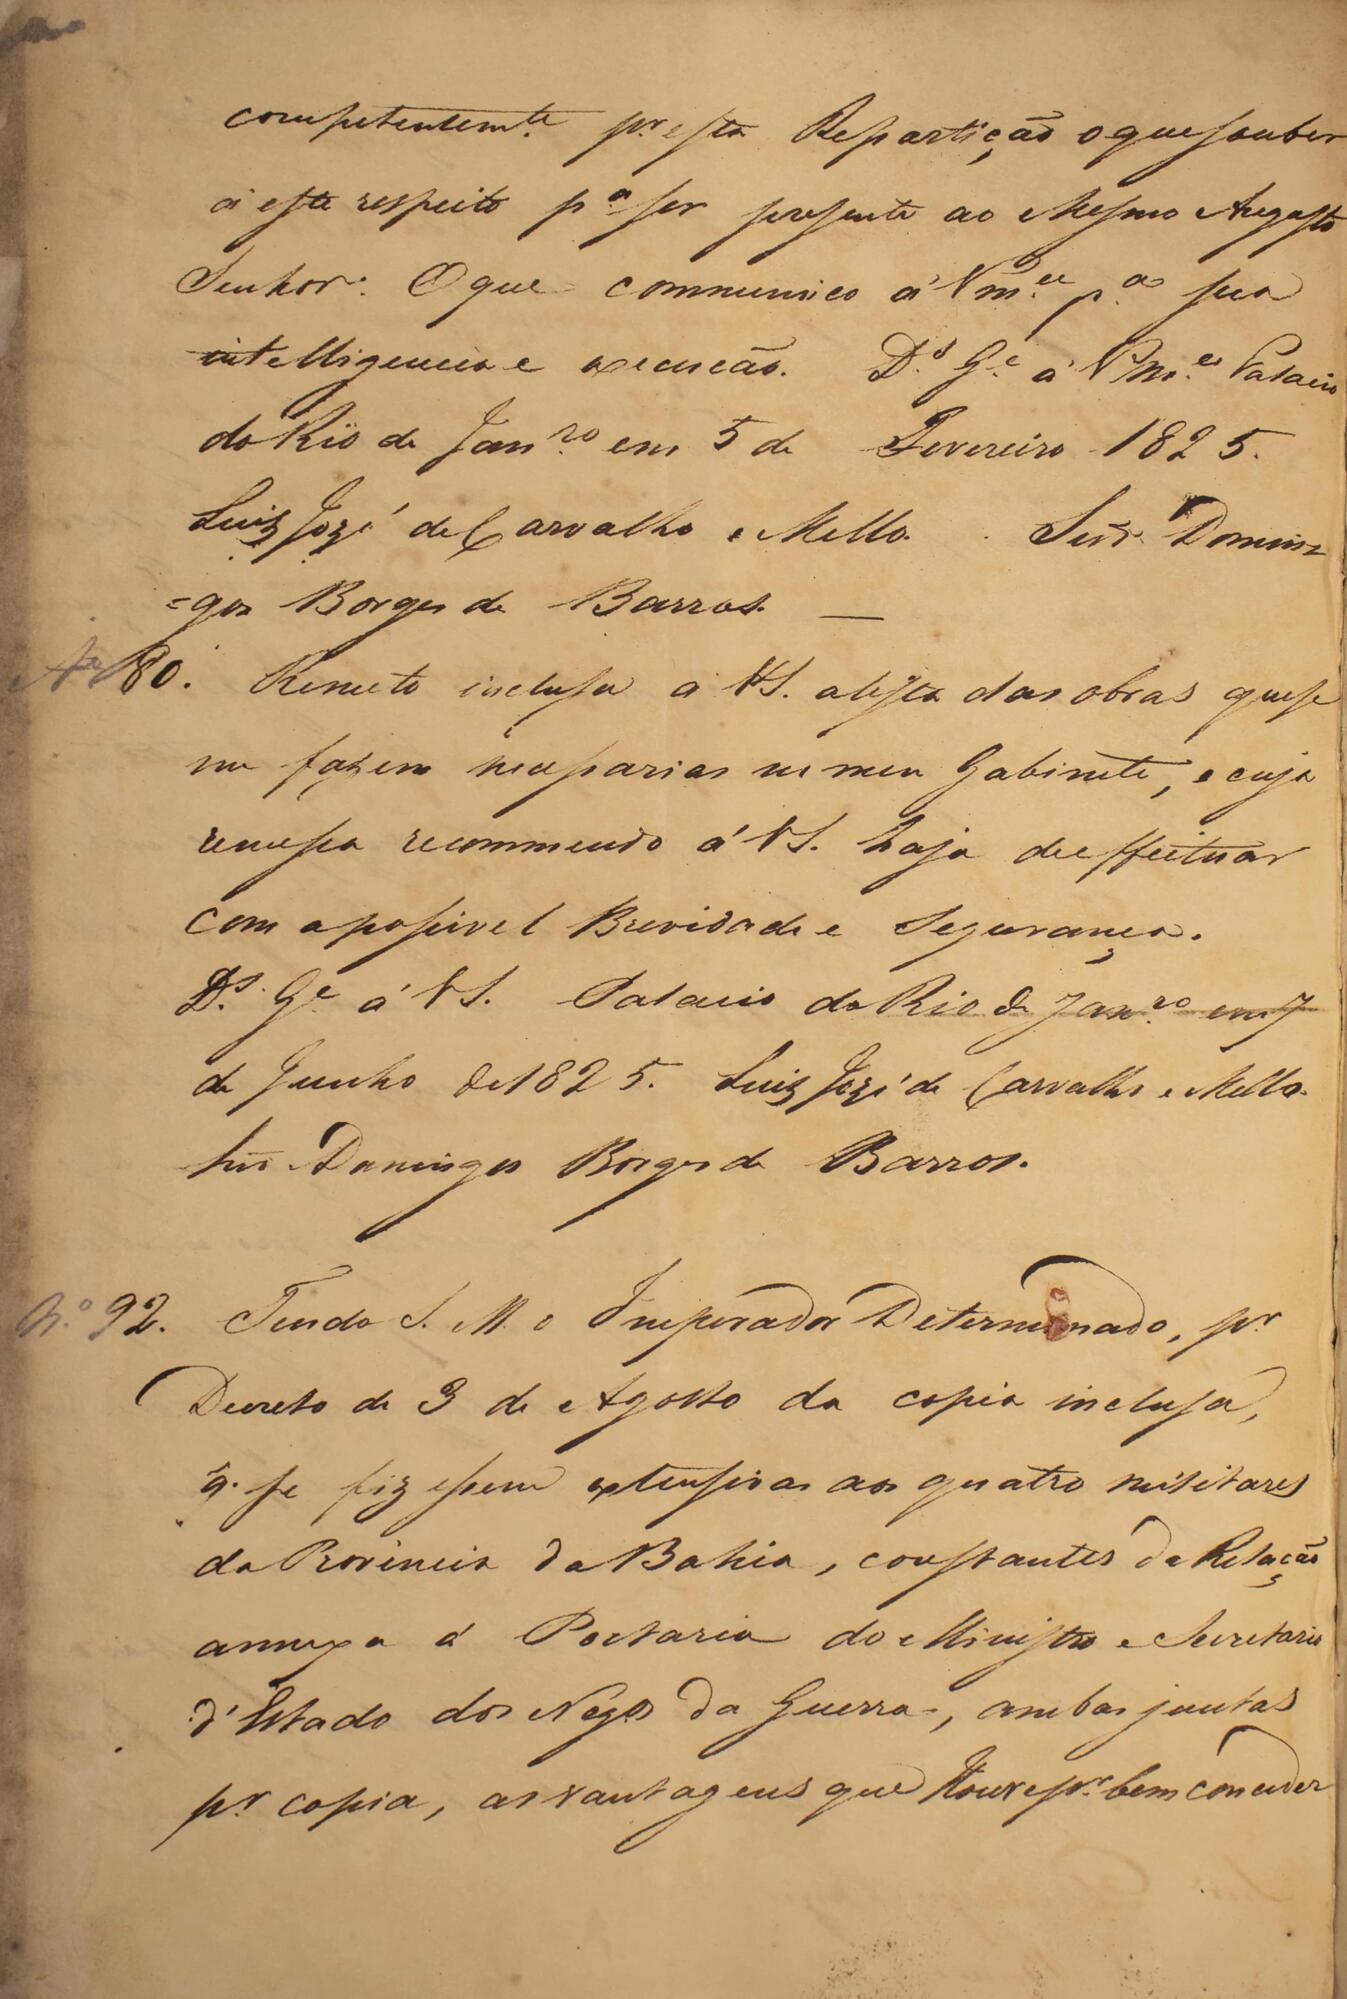 competentem.te pr esta Repartição o que souber
á este respeito p.a ser presente ao Mesmo Augusto
Senhor. O que communico á Vm.ce p.a sua
intelligencia e execução. D.s G.e a Vm.ce Palacio
do Rio de Jan.ro em 5 de Fevereiro 1825.
Luiz Jozé de Carvalho e Mello. Señr. Domin
=gos Borges de Barros. —
Nº 80. Remeto inclusa a VS. a lista das obras que se
me fazem necessarias no meu Gabinete, e cuja
remessa recommendo á VS. haja de effeituar
com a possivel Brevidade e Segurança.
D.s G.e á VS. Palacio do Rio de Jan.ro em 7
de Junho de 1825. Luiz Jozé de Carvalho e Mello.
Snr. Domingos Borges de Barros.
N.º 92. Tendo S. M. o Imperador Determinado, pr
Decreto de 3 de Agosto da copia inclusa,
q̃. se fizessem extensivas aos quatro militares
da Provincia da Bahia, constantes da Relação
annexa á Portaria do Ministro e Secretario
d'Estado dos Negos da Guerra, ambas juntas
pr copia, as vantagens que Houve pr. bem conceder